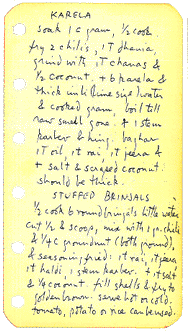 KARELA
soak 1 c gram, ½ cook.
fry 2 chilis, 1T dhania,
grind with 1T chanas &
½ coconut. + 6 karela &
thick imli (lime size) water
& cooked gram boil till
raw smell gone. + 1 stem
karber & hing. baghar
1T oil, 1t rai, 1t jeera &
+ salt & scraped coconut.
should be thick.
STUFFED BRINJALS
½ cook 8 round brinjals little water
cut ½ & scoop, mix with 1 p. chili
& ¼ c groundnut (both ground),
& seasoning fried: 1t rai, 1t jeera
1t haldi, 1 stem karber. + 1t salt
& ¼ coconut. fill shells & fry to
golden brown. serve hot or cold.
tomato, potato or rice can be used.